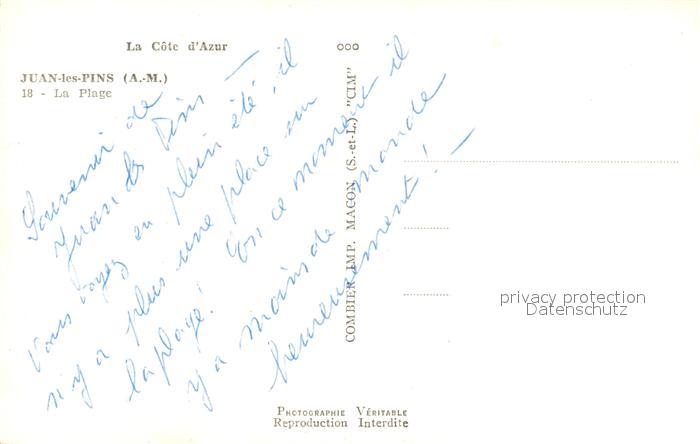 La Côte d'Azur
JUAN-les-PINS (A.-M.)
18 - La Plage
Souvenir de
Juan les Pins —
Vous voyez en plein été, il
n'y a plus une place sur
la plage! En ce moment il
y a moins de monde
heureusement! —
COMBIER IMP. MACON (S.-et-L.) "CIM"
privacy protection
Datenschutz
PHOTOGRAPHIE VÉRITABLE
Reproduction Interdite